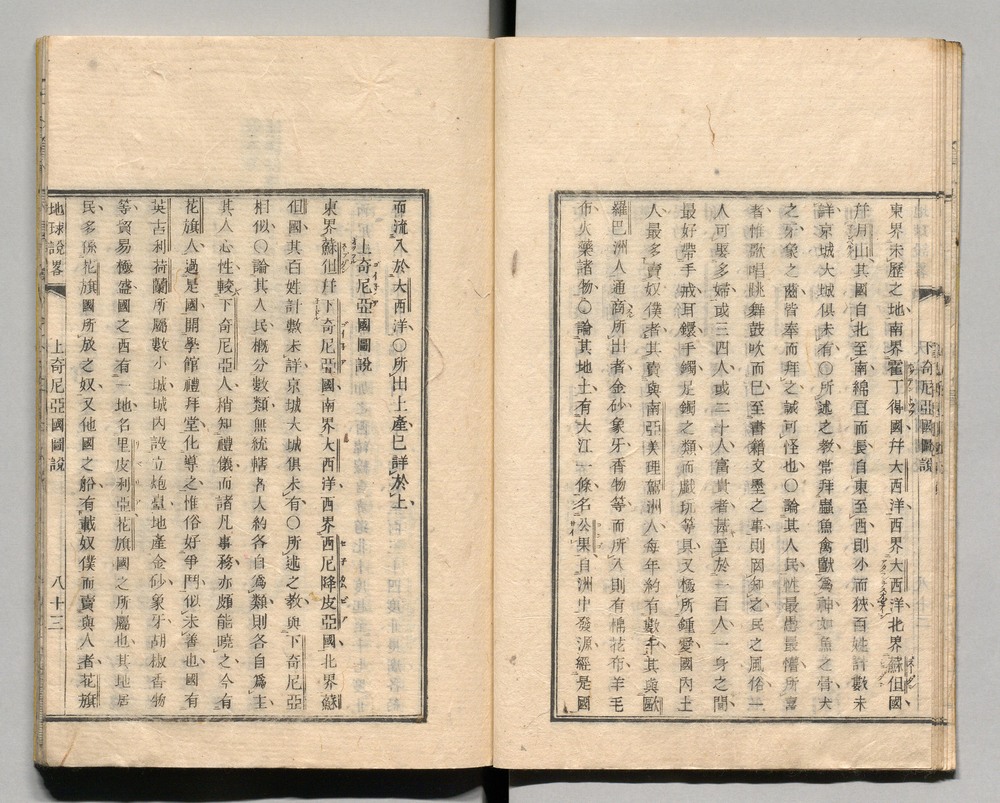 下奇尼亞國圖說
東界未歷之地南界霍丁得國幷大西洋西界大西洋北界蘇但國
幷月山其國自北至南綿亘而長自東至西則小而狹百姓計數未
詳京城大城俱未有〇所述之教常拜蟲魚禽獸爲神如魚之骨犬
之牙象之齒皆奉而拜之誠可怪也〇論其人民性最愚最懂所喜
者惟歌唱跳舞鼓吹而已至書籍文墨之事則罔知之民之風俗一
人可娶多婦或三四人或二十人富貴者甚至於一百人一身之間
最好帶手戒耳鐶手鐲足鐲之類而戲玩等具又極所鍾愛國內土
人最多賣奴僕者其賣與南亞美理駕洲人每年約有數千其與歐
羅巴洲人通商所出者金砂象牙香物等而所入則有棉花布羊毛
布火藥諸物〇論其地土有大江一條名公果自洲中發源經是國
而流入於大西洋〇所出土產已詳於上
上奇尼亞國圖說
東界蘇但幷下奇尼亞國南界大西洋西界西尼降皮亞國北界蘇
但國其百姓計數未詳京城大城俱未有〇所述之教與下奇尼亞
相似〇論其人民概分數類無統轄各人約各自爲類則各自爲主
其人心性較下奇尼亞人稍知禮儀而諸凡事務亦頗能曉之今有
花旗人過是國開學館禮拜堂化導之惟俗好爭鬥似未善也國有
英吉利荷蘭所屬數小城城內設立炮臺地產金砂象牙胡椒香物
等貿易極盛國之西有一地名里皮利亞花旗國之所屬也其地居
民多係花旗國所放之奴又他國之船有載奴僕而賣與人者花旗
地球說畧
上奇尼亞國圖說
八十三